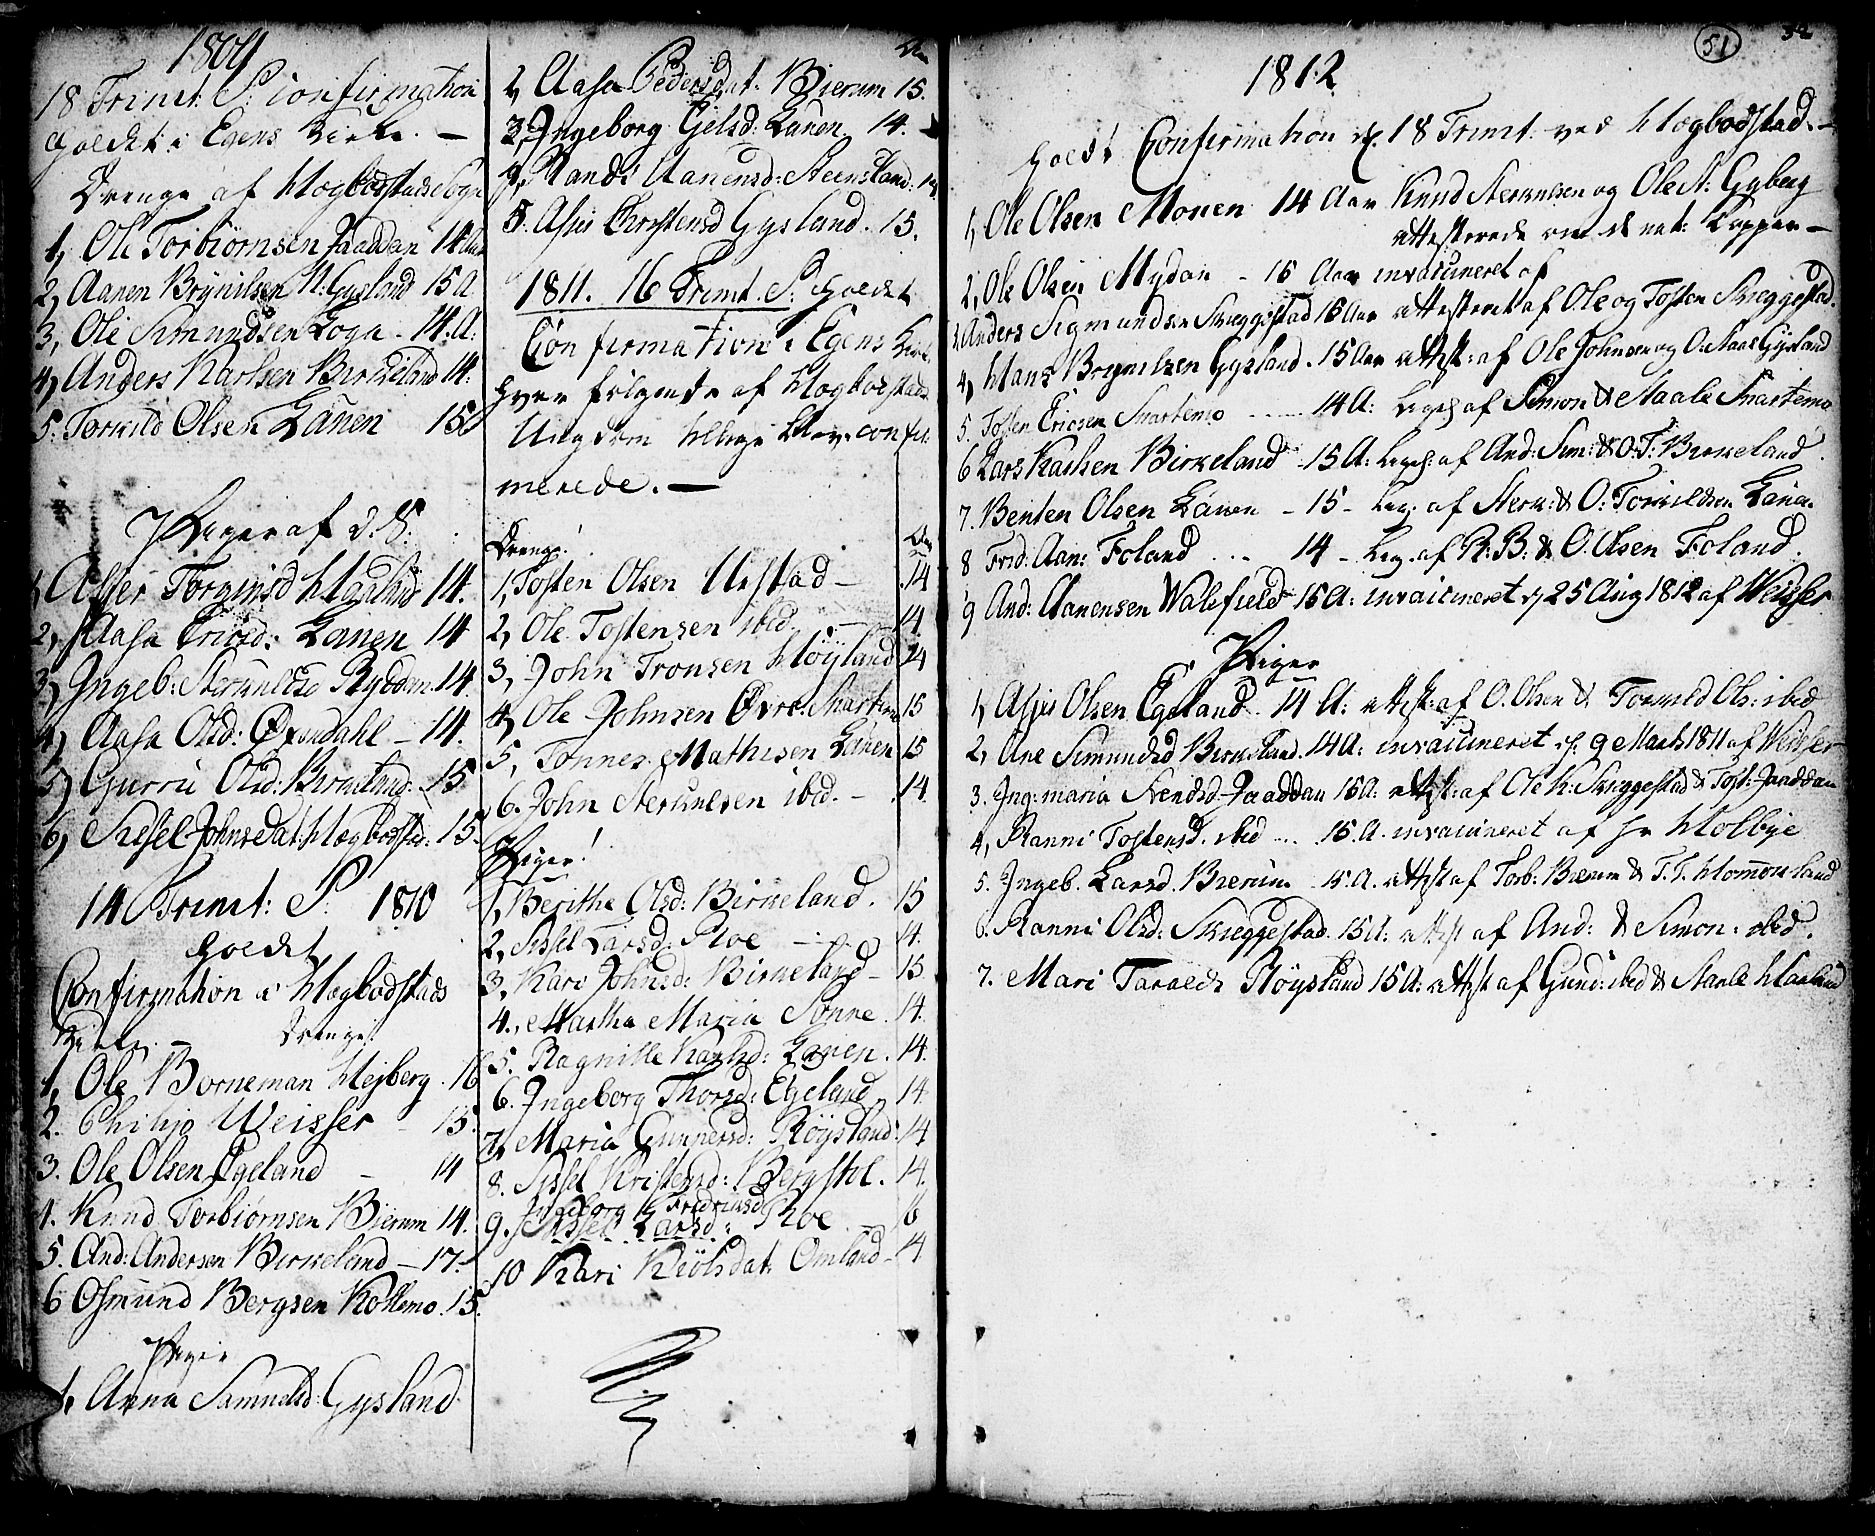 1809
18 Trinit: S: Confirmation
holdet i Egens Kirke. —
Drenge af Hægbostads Sogn
1, Ole Torbiörnsen Jaaddan 14 Aar
2, Aanen Brÿnilsen N: Gysland 15 A
3, Ole Simundsen Loga - 14. A:
4, Anders Karlsen Birkeland 14.
5. Torkild Olsen Lánen 15
Piger af d. S.
1, Assier Torgimsd 14.
2, Aasa Ericsd: Lanen 14
3, Ingeb: Rÿddan. 14.
4, Aasa Olsd: Öxendahl - 14.
5, Gurri Olsd: Birkeland. 15
6, Sissel Johnsdat. Hægbostad. 15
14 Trinit: S: 1810
holdt
Confirmation i Hægbostads
Kirke. — Drenge!
1, Ole Borneman Hejberg. 16
2. Philip Weisser - 15.
3. Ole Olsen Egeland - 14
4. Knud Torbiörnsen Bierum 14.
5. And: Andersen Birkeland - 17.
6 Osmund Bergsen Kollemo. 15.
Piger
1. Anna Samuelsd: Gysland
Aar
2, Aasa Pedersdat. Bierum 15.
3, Ingeborg Ejelsd. Lánen 14.
4, Randi Aanensd: Steensland. 14
5. Assies Christensd Gysland. 15.
1811. 16 Trinit. S: holdet
Confirmation i Egens Kirke
hvor fölgende af Hægbostads
Ungdom tillige blev confir-
merede. —
Drenge! Aar
1, Tosten Olsen Urstad — 14
2, Ole Tostensen ibid. — 14.
3, John Tronsen Höÿland 14
4, Ole Johnsen Övre Snartemo 15
5, Tönnes Mathisen Lánen 15
6. John Sterkulsen ibid. - 14.
Piger!
1, Berithe Olsd: Birkeland. 15
2, Sissel Larsd: Roe — 14.
3, Kari Johnsd: Birkeland - 15
4., Martha Maria Sonne. 14.
5. Ragnille Karlsd: Lanen. 14.
6. Ingeborg Thorsd: Egeland, 14.
7, Maria Gunnersd: Röÿsland. 14
8. Sissel Kristensd: Bergstol. 14.
Ingeborg Fredriksd
9. Sissel Larsd: Roe — 16
10 Kari Kiölsdat. Omland - 14.
51
1812
holdt Confirmation d. 18 Trinit: ved Hægbostad. —
1, Ole Olsen Monen 14 Aar Knud Sterkulsen og Ole A: Gyberg
attesterede om de nat: Kopper —
2, Ole Olsen Mydan - 15 Aar invaccineret af
3, Anders Sigmundsen Skeggestad 15 Aar attesteret af Ole og Tosten Skeggestad.
4, Hans Brynilsen Gysland. 15 Aar attest: af Ole Johnsen og Gysland
5. Tosten Ericsen Snartemo ..... 14 A: ligel: af Simon & Staale Snartemo
6 Lars Karlsen Birkeland - 15 A: ligel: af And: Sim: & O: T: Birkeland.
7. Benten Olsen Lánen - 15 - lig: af Sterk: & O: Torkildsen Lánen.
8 Frid: Aan: Foland ... 14 - lig. af P: B: & O. Olsen Foland.
9 And: Aanensen Walefield 15 A: invaccineret d. 25 Aug 1812 af Weisser
Piger
1, Assies Olsen Egeland. 14 A: attest: af O. Olsen & Torkild Ols: ibid
2, Ane Simundsd Birkeland. 14 A: invaccineret d. 9 Marts 1811 af Weisser
3. Ing: maria Svendsd Jaaddan 15 A: attest: af Ole K: Skeggestad & Tost: Jaaddan
4, Ranni Tostensd. ibid ... 15. A. invaccineret af Hr Holbye
5. Ingeb. Larsd. Bierum - 15. A. attest af Torb: Bierum & T. T. Hommeland
6. Ranni Olsd: Skeggestad. 15 A: attest af And: & Simon: ibid.
7. Mari Taraldsd Röÿsland 15 A: attest af Gund: ibid & Staale Haaland